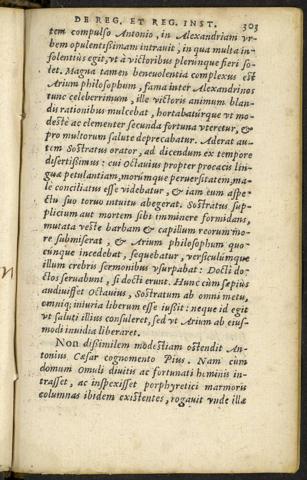 DE REG. ET REG. INST. 303
tem compulso Antonio, in Alexandriam vr-
bem opulentißimam intrauit, in qua multa in-
solentiùs egit, vt à victoribus plerunque fieri so-
let. Magna tamen beneuolentia complexus est
Arium philosophum, fama inter Alexandrinos
tunc celeberrimum, ille victoris animum blan-
dis rationibus mulcebat, hortabatúrque vt mo-
destè ac clementer secunda fortuna vteretur, &
pro multorum salute deprecabatur. Aderat au-
tem Sostratus orator, ad dicendum ex tempore
desertißimus: cui Octauius propter procacis lin-
guæ petulantiam, morúmque peruersitatem, ma-
le conciliatus esse videbatur, & iam eum aspe-
ctu suo toruo intuitu abegerat. Sostratus sup-
plicium aut mortem sibi imminere formidans,
mutata veste barbam & capillum reorum mo-
re submiserat, & Arium philosophum quo-
cunque incedebat, sequebatur, versiculúmque
illum crebris sermonibus vsurpabat: Docti do-
ctos seruabunt, si docti erunt. Hunc cùm sæpius
audiuisset Octauius, Sostratum ab omni metu,
omníq; iniuria liberum esse iussit: neque id egit
vt saluti illius consuleret, sed vt Arium ab eius-
modi inuidia liberaret.
Non dißimilem modestiam ostendit An-
tonius Cæsar cognomento Pius. Nam cùm
domum Omuli diuitis ac fortunati hominis in-
trasset, ac inspexisset porphyretici marmoris
columnas ibidem existentes, rogauit vnde illæ